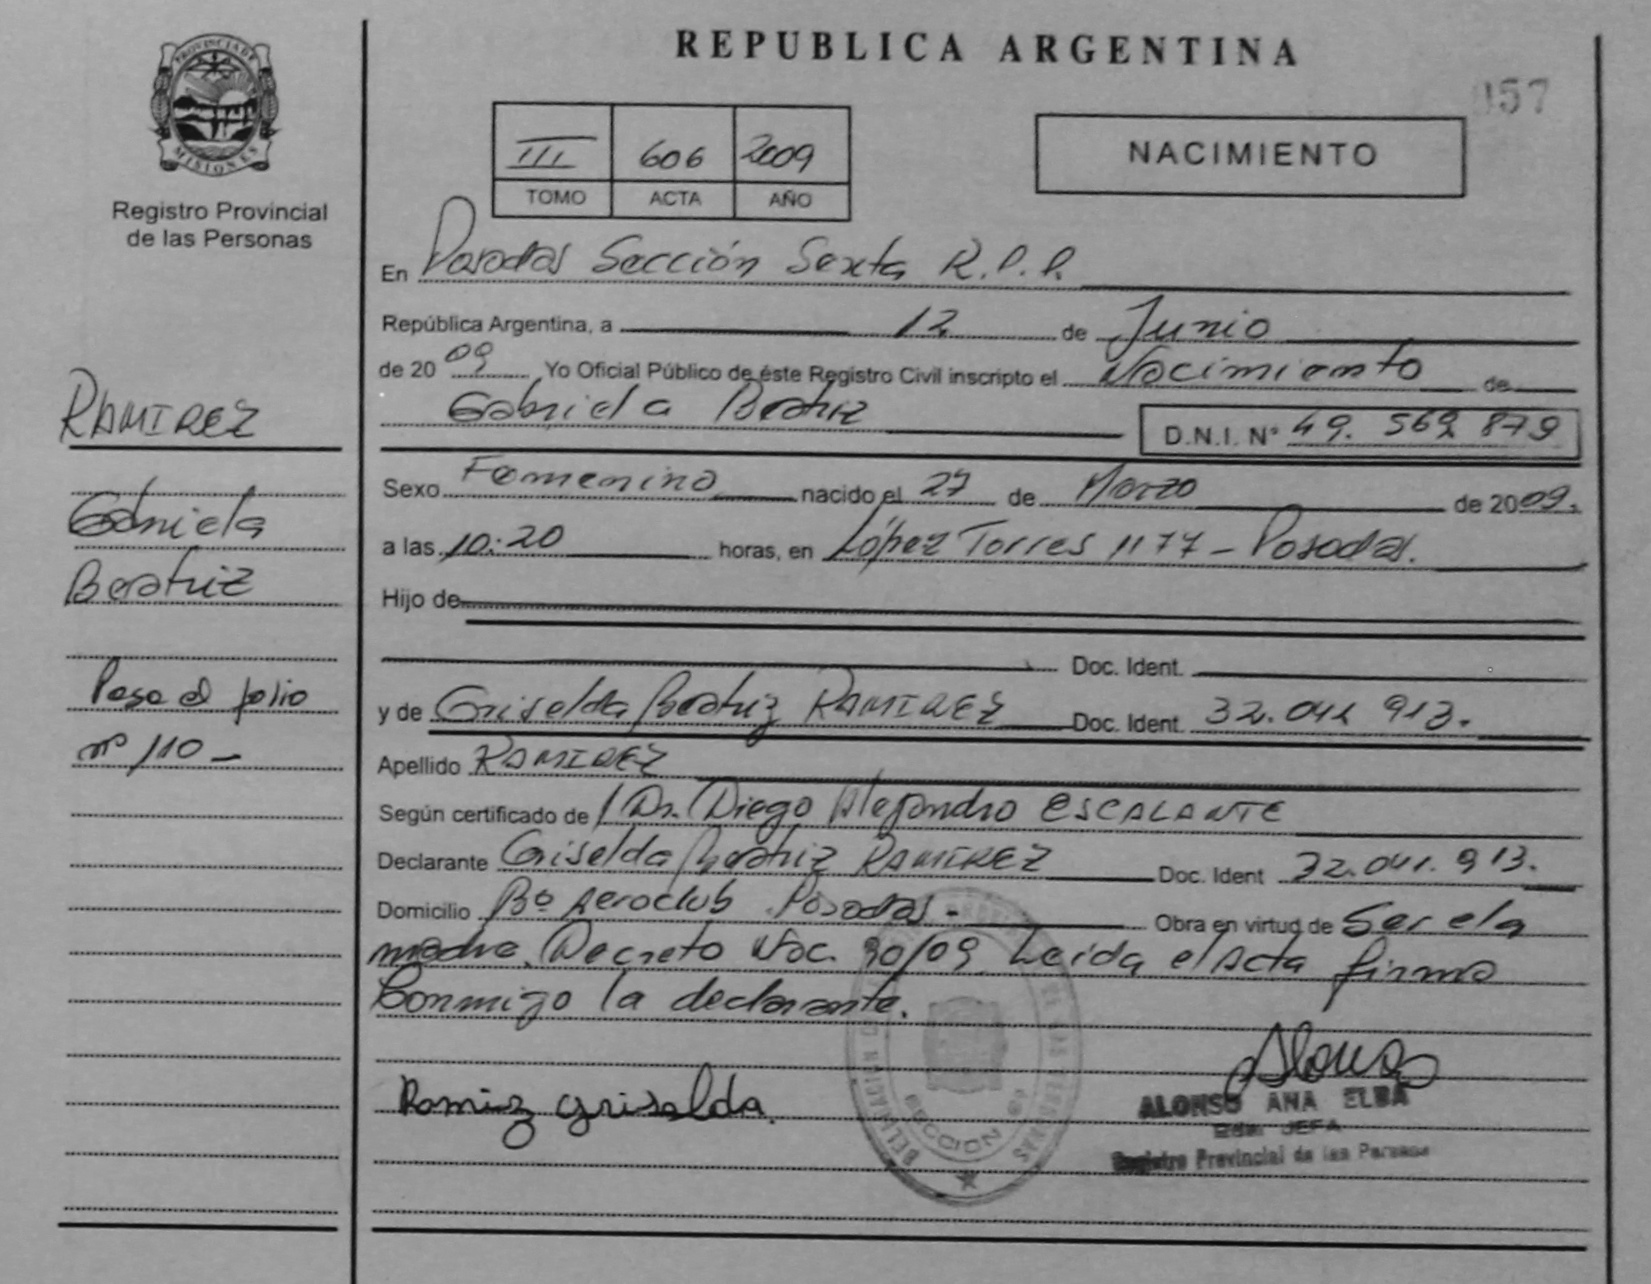 REPUBLICA ARGENTINA
PROVINCIA DE
MISIONES
Registro Provincial
de las Personas
III 606 2009
TOMO ACTA AÑO
NACIMIENTO
057
En Posadas Sección Sexta R.P.P.
República Argentina, a 12 de Junio
de 2009 Yo Oficial Público de éste Registro Civil inscripto el Nacimiento de
Gabriela Beatriz D.N.I. N° 49. 569 879
Sexo Femenino nacido el 27 de Marzo de 2009.
a las 10:20 horas, en López Torres 1177 - Posadas.
Hijo de
Doc. Ident.
y de Griselda Beatriz RAMIREZ Doc. Ident. 32.041 913.
Apellido RAMIREZ
Según certificado de Dr. Diego Alejandro ESCALANTE
Declarante Griselda Beatriz RAMIREZ Doc. Ident 32.041. 913.
Domicilio Bº Aeroclub Posadas - Obra en virtud de Ser ela
madre. Decreto Noc. 90/09 Leida el Acta firma
Conmigo la declarante.
RAMIREZ
Gabriela
Beatriz
Pasa al folio
nº 110 -
Ramirz Griselda.
Alonso
ALONSO ANA ELBA
JEFA
Registro Provincial de las Personas
SECCION